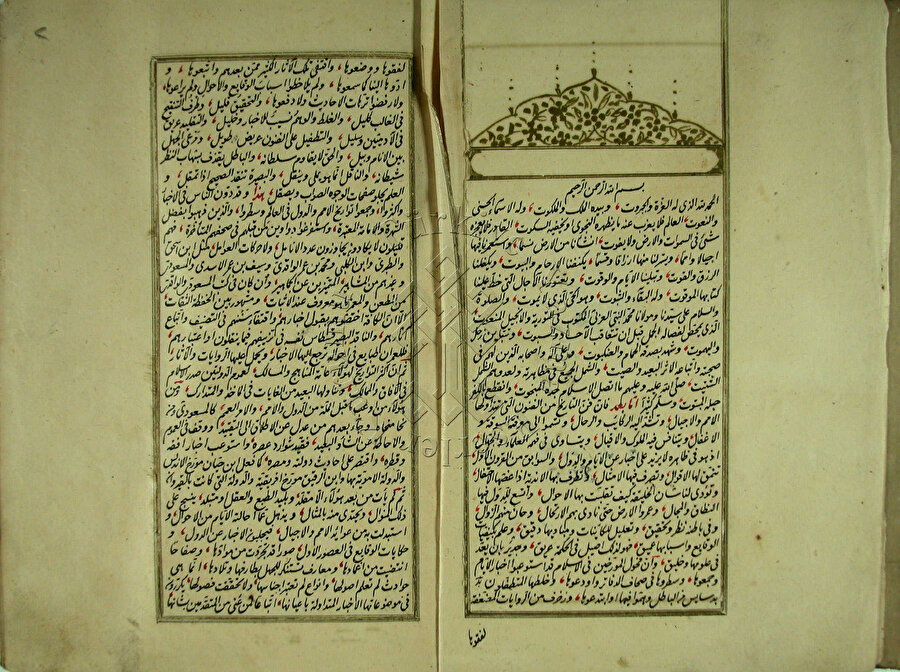 بسم الله الرحمن الرحيم
الحمد لله الذى له العزة والجبروت وبيده الملك والملكوت وله الاسماء الحسنى
والنعوت العالم فلا يعزب عنه ما تظهره النجوى او يخفيه السكوت القادر فلا يعجزه
شئ فى السموات والارض ولا يفوت انشأنا من الارض نسما واستعمرنا فيها
اجيالا وامما ويسر لنا منها ارزاقا وقسما يكنفنا الارحام والبيوت ويكفلنا
الرزق والقوت وتبلينا الايام والوقوت وتعتورنا الآجال التى خط علينا
كتابها الموقوت وله البقاء والثبوت وهو الحى الذى لا يموت والصلوة
والسلام على سيدنا ومولانا محمد النبى العربى المكتوب فى التورية والانجيل المنعوت
الذى تمخض لفصاله قبل ان تتعاقب الآحاد والسبوت ويتباين زحل
واليهموت وشهد بصدقه الحمام والعنكبوت وعلى آله واصحابه الذين لهم فى
صحبته واتباعه الاثر البعيد والصيت والشمل الجميع فى مظاهرته ولعدوهم الشمل
الشتيت صلى الله عليه وعليهم ما اتصل بالاسلام جده المبخوت وانقطع بالكفر
حبله المبتوت وسلم كثيرا اما بعد فان فن التاريخ من الفنون التى تتداولها
الامم والاجيال وتشد اليه الركائب والرحال وتسمو الى معرفته السوقة و
الاغفال ويتنافس فيه الملوك والاقيال ويتساوى فى فهمه العلماء والجهال
اذ هو فى ظاهره لا يزيد على اخبار عن الايام والدول والسوابق من القرون الاول
تنمق لها الاقوال وتصرف فيها الامثال وتطرف بها الاندية اذا غصها الاحتفال
وتؤدى لنا شان الخليقة كيف تقلبت بها الاحوال واتسع للدول فيها
النطاق والمجال وعمروا الارض حتى نادى بهم الارتحال وحان منهم الزوال
وفى باطنه نظر وتحقيق وتعليل للكائنات ومباديها دقيق وعلم بكيفيات
الوقايع واسبابها عميق فهو لذلك اصيل فى الحكمة عريق وجدير بان يعد
فى علومها وخليق وان فحول المؤرخين فى الاسلام قد استوعبوا اخبار الايام
وجمعوها وسطروها فى صحائف الدفاتر واودعوها وخلطها المتطفلون
بدسايس من الباطل وهموا فيها او ابتدعوها وزخرف من الروايات المضعفة
لفقوها
لفقوها ووضعوها واقتفى تلك الآثار الكثير ممن بعدهم واتبعوها و
ادوها الينا كما سمعوها ولم يلاحظوا اسباب الوقايع والاحوال ولم يراعوها
ولا رفضوا ترهات الاحاديث ولا دفعوها والتحقيق قليل وطرف التنقيح
فى الغالب كليل والغلط والوهم نسيب للاخبار وخليل والتقليد عريق
فى الآدميين وسليل والتطفيل على الفنون عريض طويل ومرعى الجهل
بين الانام وبيل والحق لا يقاوم سلطانه والباطل يقذف بشهاب النظر
شيطانه والناقل انما هو يملى وينقل والبصيرة تنقد الصحيح اذا تمقل و
العلم يجلو صفحات الصواب ويصقل هذا وقد دون الناس فى الاخبار
واكثروا وجمعوا تواريخ الامم والدول فى العالم وسطروا والذين ذهبوا بفضل
الشهرة والامانة المعتبرة واستفرغوا دواوين من قبلهم فى صحفهم المتأخرة هم
قليلون لا يكادون يجاوزون عدد الانامل ولا حركات العوامل مثل ابن اسحق
والطبرى وابن الكلبى ومحمد بن عمر الواقدى وسيف بن عمر الاسدى والمسعودى
وغيرهم من المشاهير المتميزين عن الجماهير وان كان فى كتب المسعودى والواقدى
من المطعن والمغمز ما هو معروف عند الاثبات ومشهور بين الحفظة الثقات
الا ان الكافة اختصتهم بقبول اخبارهم واقتفاء سننهم فى التصنيف واتباع
آثارهم والناقد البصير قسطاس نفسه فى تزييفهم فيما ينقلون او اعتبارهم
فللعمران طبايع فى احواله ترجع اليها الاخبار وتحمل عليها الروايات والآثار
ثم ان اكثر التواريخ لهؤلاء عامة المناهج والمسالك لعموم الدولتين صدر الاسلام
فى الآفاق والممالك وتناولها البعيد من الغايات فى المآخذ والمتارك ومن
هؤلاء من استوعب ما قبل الملة من الدول والامم والامر العمم كالمسعودى ومن
نحا منحاه وجاء بعدهم من عدل عن الاطلاق الى التقييد ووقف فى العموم
والاحاطة عن الشأو البعيد فقيد شوارد عصره واستوعب اخبار افقه
وقطره واقتصر على احاديث دولته ومصره كما فعل ابن حيان مورخ الاندلس
والدولة الاموية بها وابن الرقيق مورخ افريقية والدولة التى كانت بالقيروان
ثم لم يات من بعد هؤلاء الا مقلد وبليد الطبع والعقل او متبلد ينسج على
ذلك المنوال ويحتذى منه بالمثال ويذهل عما احالته الايام من الاحوال و
استبدلت به من عوائد الامم والاجيال فيجلبون الاخبار عن الدول و
حكايات الوقايع فى العصور الاول صورا قد تجردت من موادها وصفاحا
انتضيت من اغمادها ومعارف تستنكر للجهل بطارفها وتلادها انما هى
حوادث لم تعلم اصولها وانواع لم تعتبر اجناسها ولا تحققت فصولها يكررون
فى موضوعاتها الاخبار المتداولة باعيانها اتباعا لمن عنى من المتقدمين بشانها